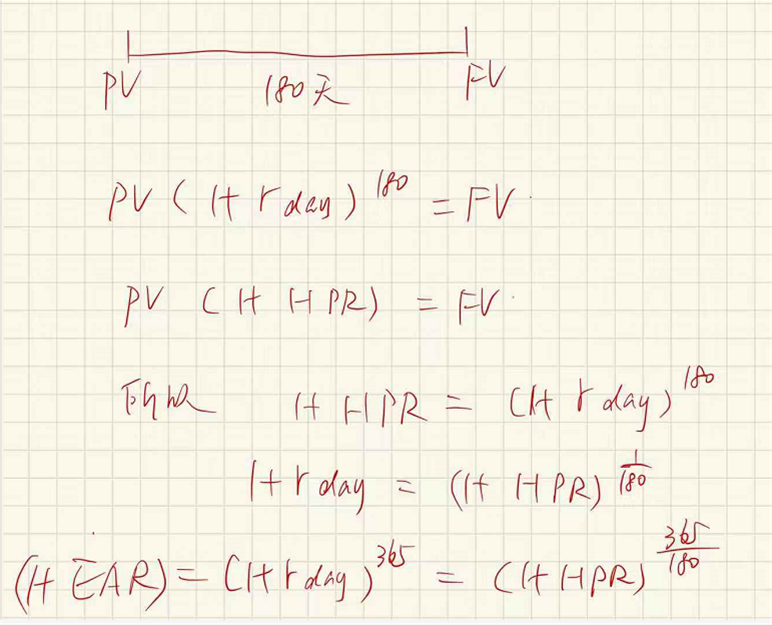 PV 180天 FV
PV (1+ r day)^180 = FV
PV (1+ HPR) = FV
所以 1+ HPR = (1+ r day)^180
1+ r day = (1+ HPR)^(1/180)
(1+ EAR) = (1+ r day)^365 = (1+ HPR)^(365/180)